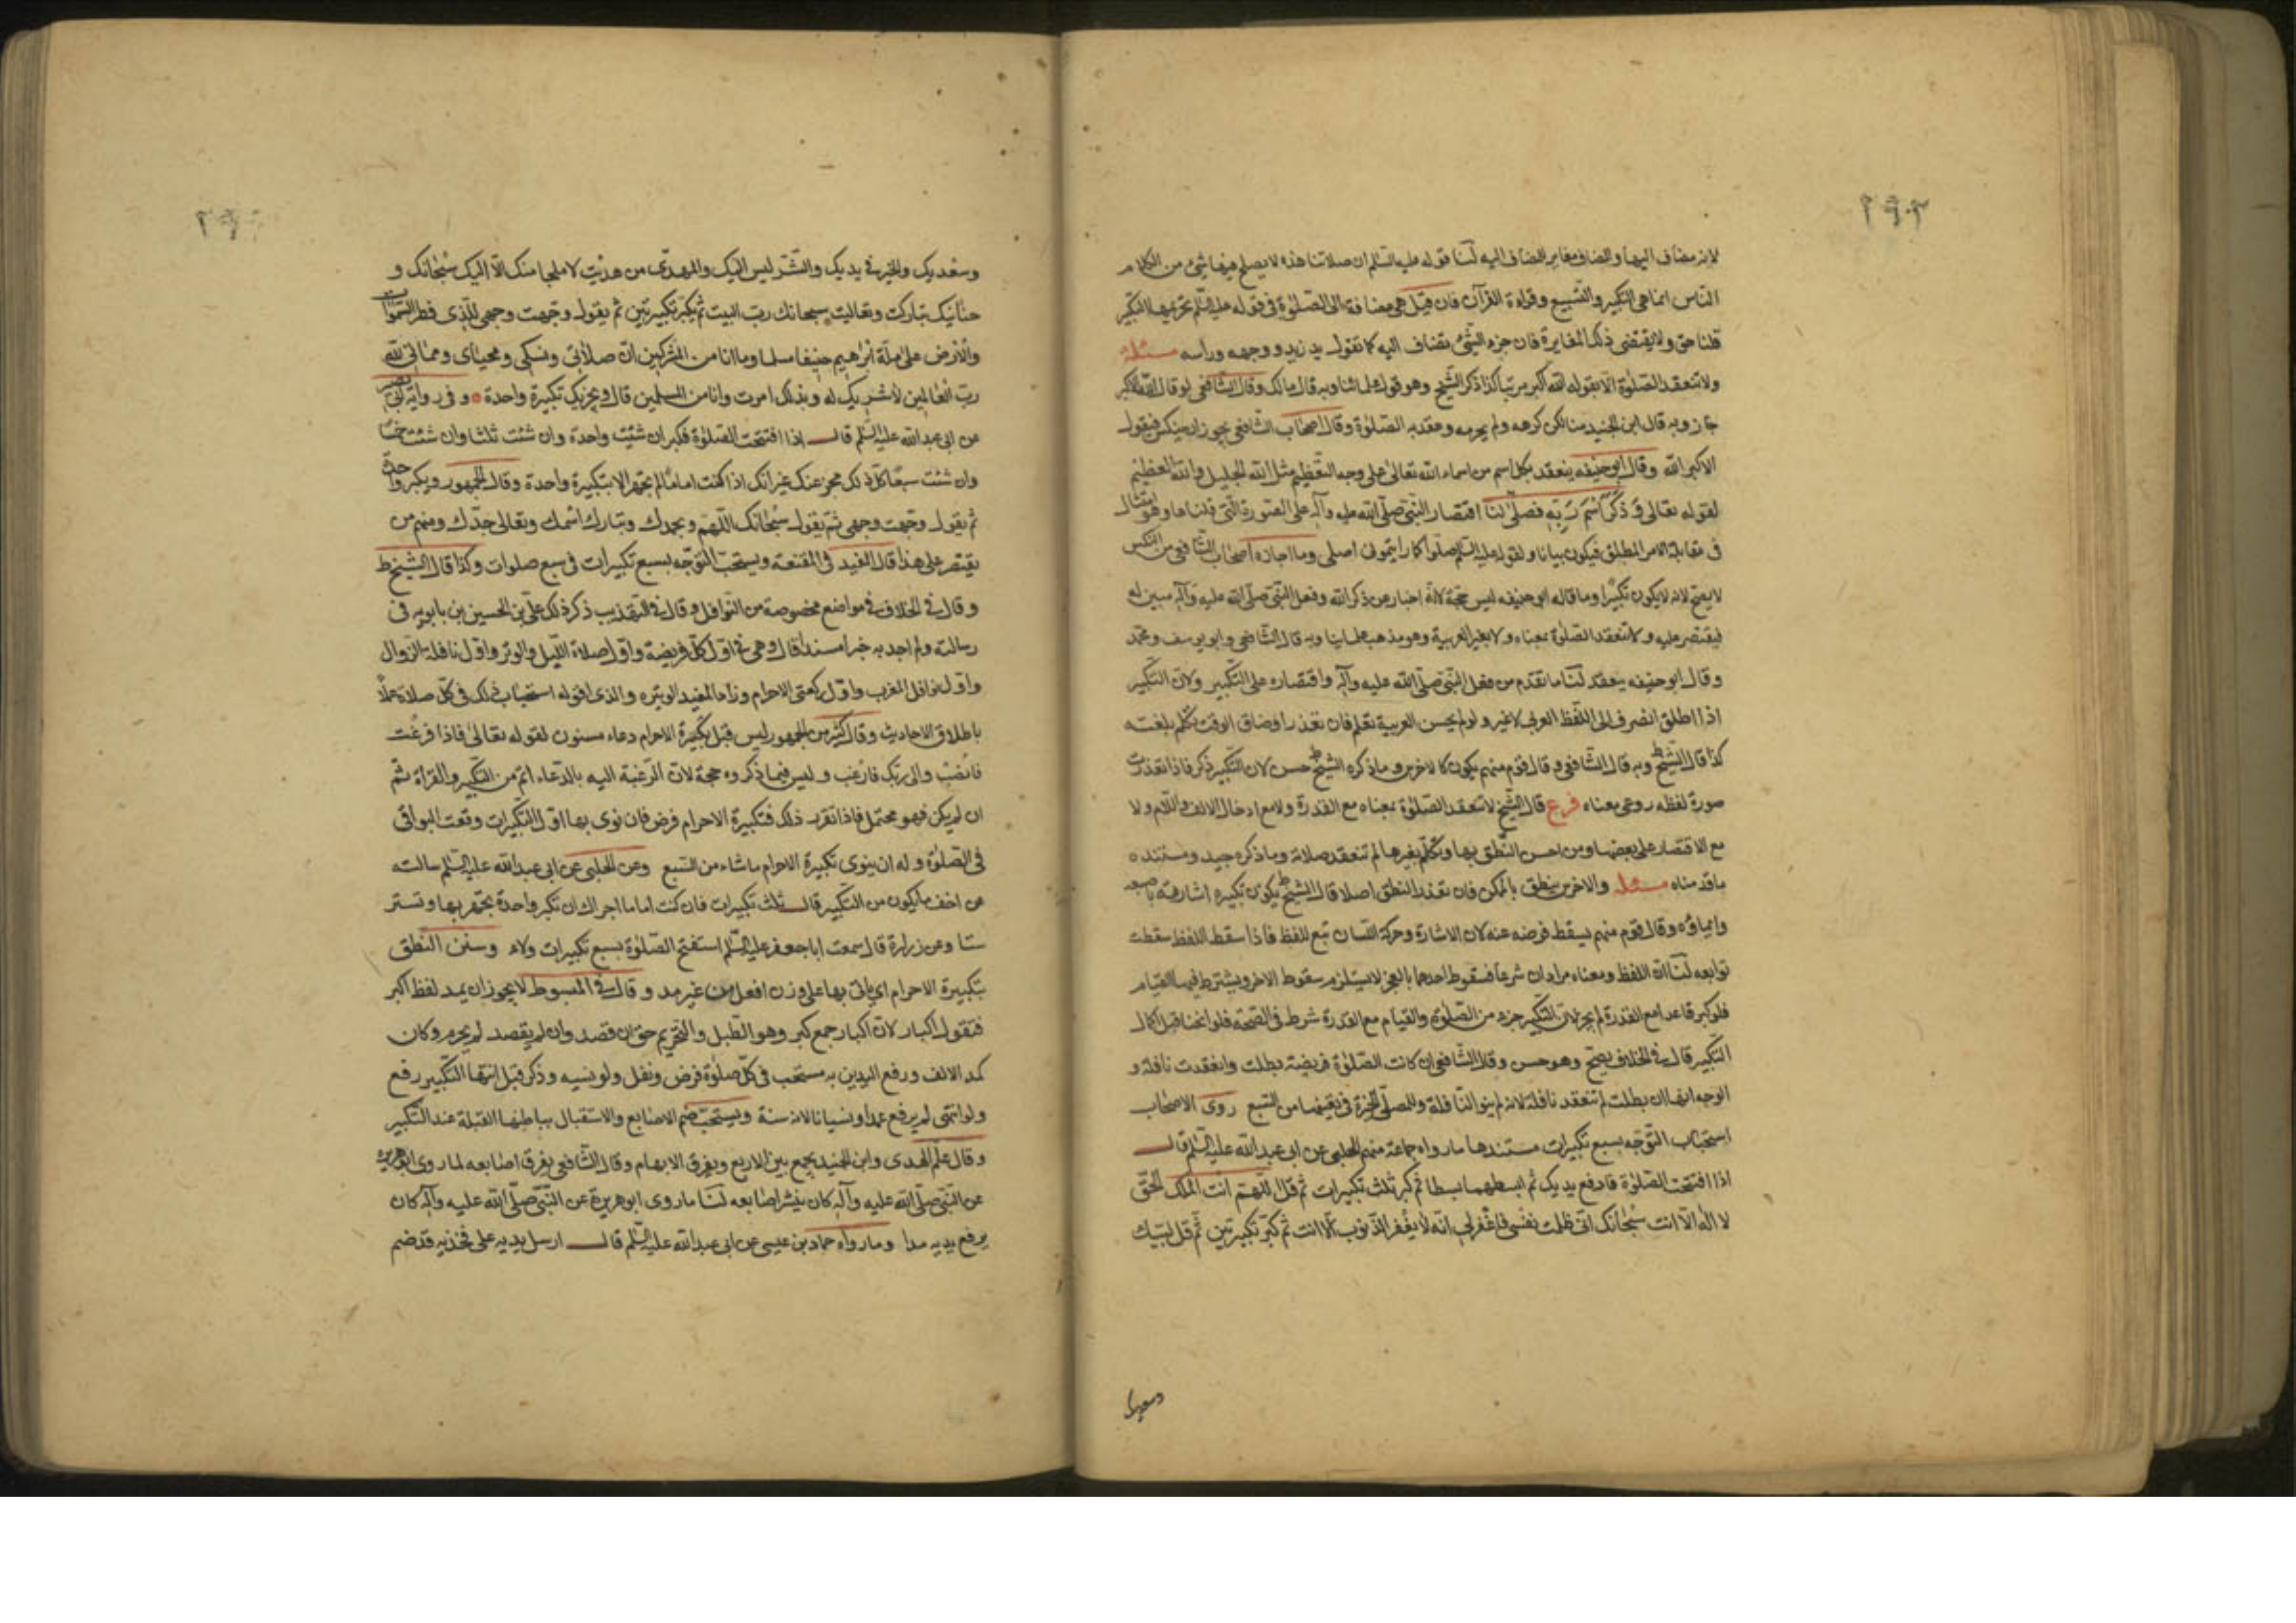 ۲۹۲
لانه مضاف اليها والمضاف مغاير المضاف اليه لنا قوله عليه السلام ان صلاتنا هذه لا يصلح فيها شئ من الكلام
الناس انما هى التكبير والتسبيح وقراءة القرآن فان قيل هى مضافة الى الصلوة فى قوله عليه السلم تحريمها التكبير
قلنا حق ولا يقتضى ذلك المغايرة فان جزء الشئ يضاف اليه كما تقول يد زيد ووجهه وراسه مسئلة
ولا تنعقد الصلوة الا بقوله الله اكبر مرتبا كذا ذكر الشيخ وهو قول علمائنا وبه قال مالك وقال الشافعى لو قال الله الاكبر
جاز وبه قال ابن الجنيد منا لكن كرهه ولم يحرمه وعقد به الصلوة وقال اصحاب الشافعى يجوز ان ينكس فيقول
الاكبر الله وقال ابوحنيفه ينعقد بكل اسم من اسماء الله تعالى على وجه التعظيم مثل الله الجليل والله العظيم
لقوله تعالى وَذَكَرَ اسْمَ رَبِّهِ فصلى لنا اقتصار النبى صلى الله عليه وآله على الصورة التى قلناها وفعله امتثال
فى مقابلة الامر المطلق فيكون بيانا ولقوله عليه السلم صلوا كما رايتمونى اصلى وما اجازه اصحاب الشافعى من النكس
لا يصح لانه لا يكون تكبيرا وما قاله ابو حنيفه ليس بحجة لانه اخبار عن ذكر الله وفعل النبى صلى الله عليه وآله مبين له
فيقتصر عليه ولا تنعقد الصلوة بمعناه ولا بغير العربية وهو مذهب علمائنا وبه قال الشافعى وابو يوسف ومحمد
وقال ابو حنيفه ينعقد لنا ما تقدم من فعل النبى صلى الله عليه وآله واقتصاره على التكبير ولان التكبير
اذا اطلق انصرف الى اللفظ العربى لا غير ولو لم يحسن العربية تعلم فان تعذر او ضاق الوقت تكلم بلغته
كذا قال الشيخ وبه قال الشافعى وقال قوم منهم يكون كالاخرس وما ذكره الشيخ حسن لان التكبير ذكر فاذا تعذرت
صورة لفظه روعى معناه فرع قال الشيخ لا تنعقد الصلوة بمعناه مع القدرة ولا مع ادخال الالف واللام ولا
مع الاقتصار على بعضها ومن احسن النطق بها وتكلم بغيرها لم تنعقد صلاته وما ذكره جيد ومستنده
ما قدمناه مسئله والاخرس ينطق بالممكن فان تعذر النطق اصلا قال الشيخ يكون تكبيره اشارته باصبعه
وايماؤه وقال قوم منهم يسقط فرضه عنه لان الاشارة وحركة اللسان تبع للفظ فاذا سقط اللفظ سقطت
توابعه لنا ان اللفظ ومعناه مرادان شرعا فسقوط احدهما بالعجز لا يستلزم سقوط الاخر ويشترط فيها القيام
فلو كبر قاعدا مع القدرة لم يجز لان التكبير جزء من الصلوة والقيام مع القدرة شرط فى الصحة فلو انحنا قبل اكمال
التكبير قال فى الخلاف يصح وهو حسن وقال الشافعى ان كانت الصلوة فريضة بطلت وانعقدت نافلة و
الوجه انها ان بطلت لم تنعقد نافلة لانه لم ينو النافلة وللمصلى الخيرة فى تعيينها من السبع روى الاصحاب
استحباب التوجه بسبع تكبيرات مستندها ما رواه جماعة منهم الحلبى عن ابى عبد الله عليه السلم قال
اذا افتتحت الصلوة فارفع يديك ثم ابسطهما بسطا ثم كبر ثلث تكبيرات ثم قل اللهم انت الملك الحق
لا اله الا انت سبحانك انى ظلمت نفسى فاغفر لى انه لا يغفر الذنوب الا انت ثم كبر تكبيرتين ثم قل لبيك
وسعديك
وسعديك والخير فى يديك والشر ليس اليك والمهدى من هديت لا ملجا منك الا اليك سبحانك و
حنانيك تباركت وتعاليت سبحانك رب البيت ثم يكبر تكبيرتين ثم يقول وجهت وجهى للذى فطر السموات
والارض على ملة ابراهيم حنيفا مسلما وما انا من المشركين ان صلاتى ونسكى ومحياى ومماتى لله
رب العالمين لا شريك له وبذلك امرت وانا من المسلمين قال ويجزيك تكبيرة واحدة و فى رواية ابى بصير
عن ابى عبد الله عليه السلم قال اذا افتتحت الصلوة فكبر ان شئت واحدة وان شئت ثلثا وان شئت خمسا
وان شئت سبعا كل ذلك مجز عنك غير انك اذا كنت اماما لم تجهر الا بتكبيرة واحدة وقال الجمهور ويكبر واحدة
ثم يقول وجهت وجهى ثم يقول سبحانك اللهم وبحمدك وتبارك اسمك وتعالى جدك ومنهم من
يقتصر على هذا قال المفيد فى المقنعة ويستحب التوجه بسبع تكبيرات فى سبع صلوات وكذا قال الشيخ ط
وقال فى الخلاف فى مواضع مخصوصة من النوافل وقال فى التهذيب ذكر ذلك على بن الحسين بن بابويه فى
رسالته ولم اجد به خبرا مسندا قال وهى فى اول كل فريضة واول صلاة الليل والوتر واول نافلة الزوال
واول نوافل المغرب واول ركعتى الاحرام وزاد المفيد الوتيره والذى اقوله استحباب ذلك فى كل صلاة عملا
باطلاق الاحاديث وقال كثير من الجمهور ليس قبل تكبيرة الاحرام دعاء مسنون لقوله تعالى فاذا فرغت
فانصب والى ربك فارغب وليس فيما ذكروه حجة لان الرغبة اليه بالدعاء اتم من التكبير والقراة ثم
ان لم يكن فهو محتمل فاذا تقرر ذلك فتكبيرة الاحرام فرض فان نوى بها اول التكبيرات وقعت البواقى
فى الصلوة وله ان ينوى تكبيرة الاحرام ما شاء من السبع وعن الحلبى عن ابى عبد الله عليه السلم سالته
عن اخف ما يكون من التكبير قال ثلث تكبيرات فان كنت اماما اجزاك ان تكبر واحدة تجهر بها وتستر
ستا وعن زرارة قال سمعت ابا جعفر عليه السلم استفتح الصلوة بسبع تكبيرات ولاء وسنن النطق
بتكبيرة الاحرام اى ياتى بها على وزن افعل من غير مد وقال فى المبسوط لا يجوز ان يمد لفظ اكبر
فتقول اكبار لان اكبار جمع كبر وهو الطبل والتحريم حق ان قصد وان لم يقصد لم يحرم وكان
كمد الالف ورفع اليدين به مستحب فى كل صلوة فرض ونفل ولو نسيه وذكر قبل انتهاء التكبير رفع
ولو انتهى لم يرفع عمدا ونسيانا لانه سنة ويستحب ضم الاصابع والاستقبال بباطنها القبلة عند التكبير
وقال علم الهدى وابن الجنيد يجمع بين الاربع ويفرق الابهام وقال الشافعى يفرق اصابعه لما روى ابو هريرة
عن النبى صلى الله عليه وآله كان ينشر اصابعه لنا ما روى ابو هريرة عن النبى صلى الله عليه وآله كان
يرفع يديه مدا وما رواه حماد بن عيسى عن ابى عبد الله عليه السلم قال ارسل يديه على فخذيه قد ضم